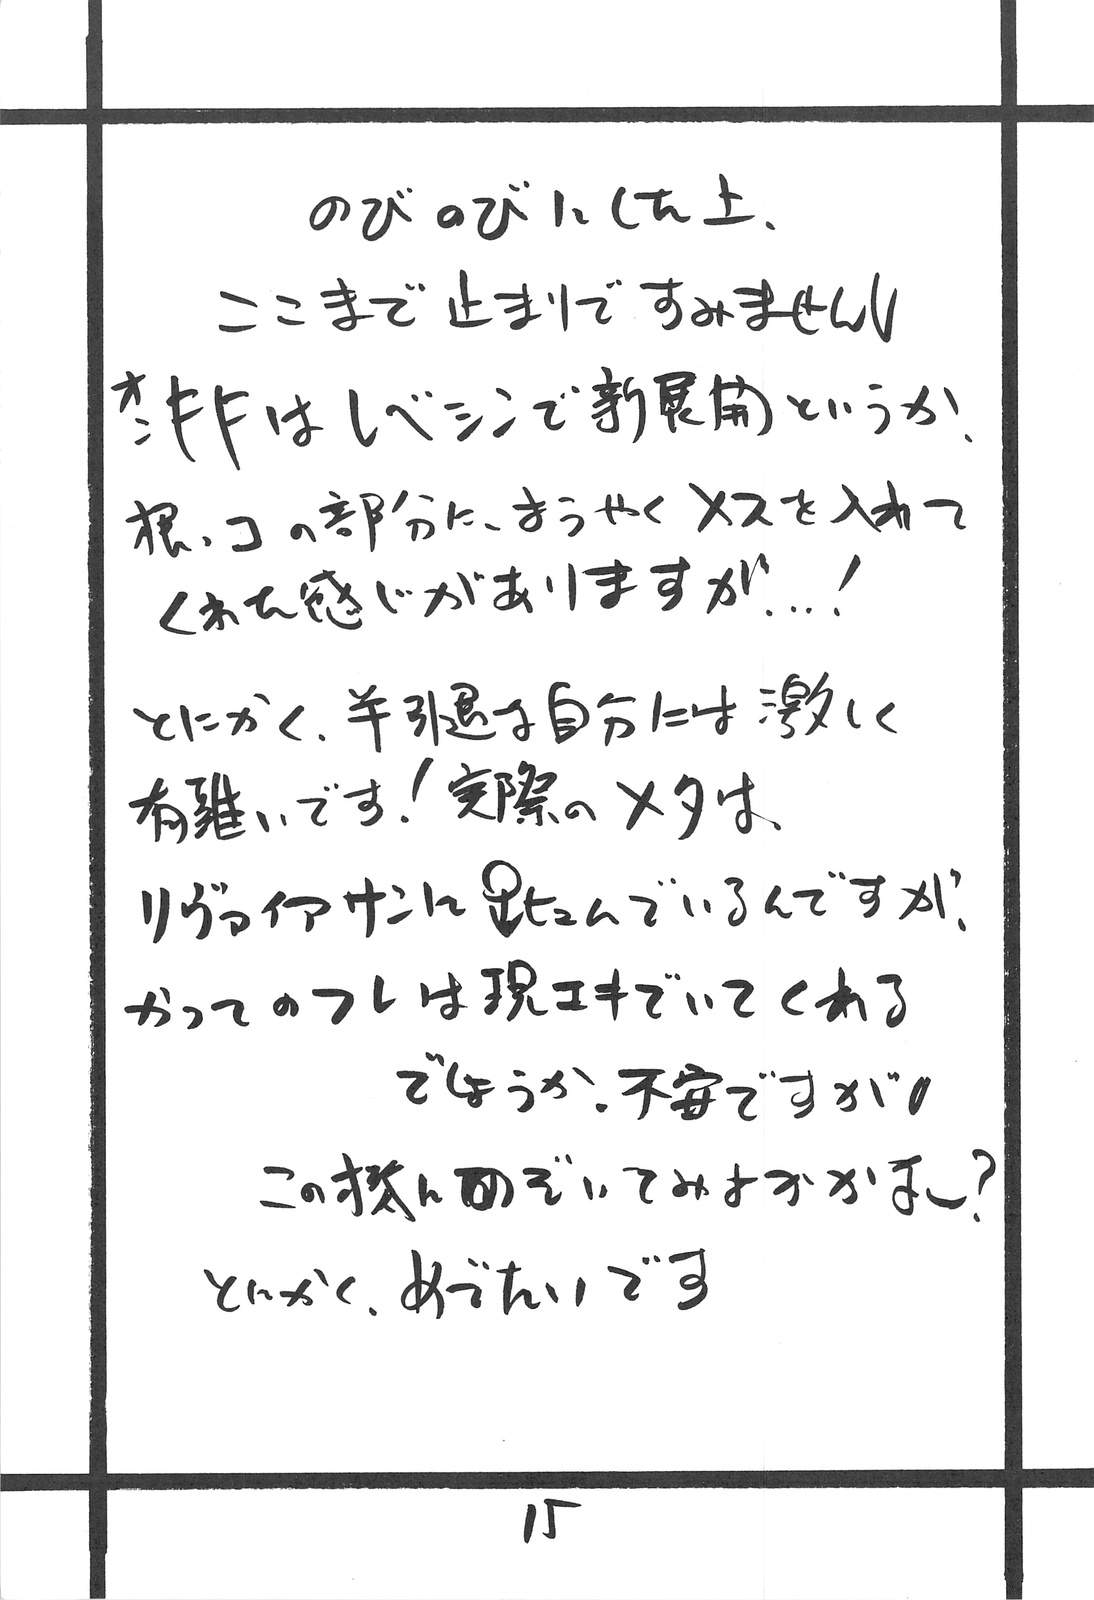 のびのびにした上、
ここまで止まりですみません
はレベシンで新展開というか、
根っコの部分に、ようやくメスを入れて
くれた感じがありますが…!
とにかく、半引退な自分には激しく
有難いです!実際のメタは、
リヴァイアサンに んでいるんですが、
かつてのフレは現エキでいてくれる
でしょうか、不安ですが
この機に のぞいてみよおかなー?
とにかく、めでたいです
15